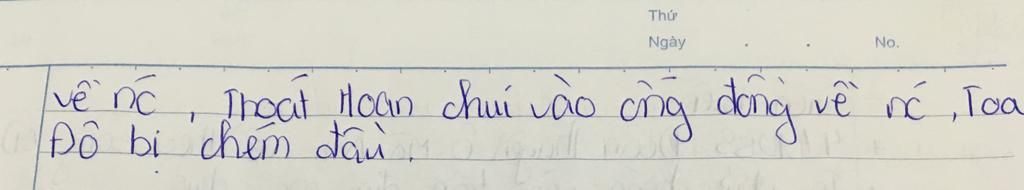 Thứ
Ngày . . No.
về nć, Thoát Hoan chui vào ống đồng về nć, Toa
Đô bị chém đầu.